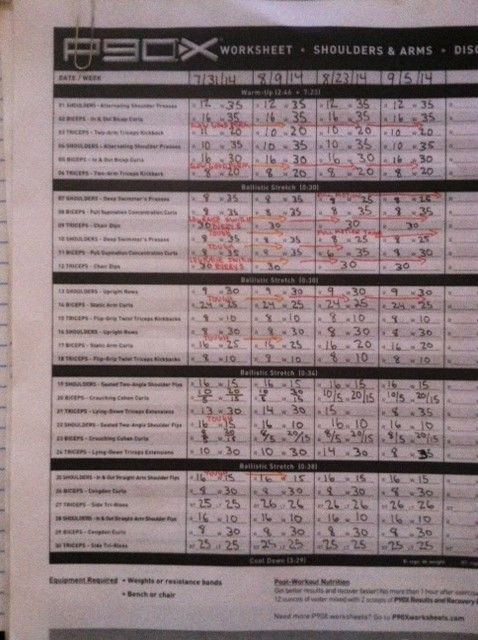 P90X WORKSHEET • SHOULDERS & ARMS • DISC
DATE / WEEK 7/31/14 8/9/14 8/23/14 9/5/14
Warm-Up (2:46 + 7:23)
01 SHOULDERS - Alternating Shoulder Presses R 12 W 35 R 12 W 35 R 12 W 35 R 12 W 35
02 BICEPS - In & Out Bicep Curls R 16 W 35 R 16 W 35 R 16 W 35 R 16 W 35
03 TRICEPS - Two-Arm Tricep Kickback 20 R 10 W 20 R 10 W 20 R 10 W 20
04 SHOULDERS - Alternating Shoulder Presses R 10 W 35 R 10 W 35 R 10 W 35 R 10 W 35
05 BICEPS - In & Out Bicep Curls R 16 W 30 R 16 W 30 R 16 W 30 R 16 W 30
06 TRICEPS - Two-Arm Tricep Kickback R 8 W 20 R 8 W 20 R 8 W 20 R 8 W 20
Ballistic Stretch (0:30)
07 SHOULDERS - Deep Swimmer's Presses R 8 W 35 R 8 W 35 8 25 R 8 W 25
08 BICEPS - Full Supination Concentration Curls R 8 W 35 R 8 W 35 R 8 W 35 R 8 W 35
09 TRICEPS - Chair Dips 30 30 30 30
TOUGH
10 SHOULDERS - Deep Swimmer's Presses R 8 W 35 R 8 W 35 R 8 W 25 R 8 W 25
TOUGH
11 BICEPS - Full Supination Concentration Curls R 8 W 35 R 8 W 35 R 6 W 35 R 8 W 30
12 TRICEPS - Chair Dips 30 30 30 30
Ballistic Stretch (0:30)
13 SHOULDERS - Upright Rows R 9 W 30 R 9 W 30 R 9 W 30 R 9 W 30
TOUGH
14 BICEPS - Static Arm Curls R 24 W 25 R 24 W 25 R 24 W 25 R 24 W 25
15 TRICEPS - Flip-Grip Twist Triceps Kickbacks R 8 W 10 R 8 W 10 R 8 W 10 R 8 W 10
16 SHOULDERS - Upright Rows R 8 W 30 R 8 W 30 R 8 W 30 R 8 W 30
TOUGH
17 BICEPS - Static Arm Curls R 16 W 25 R 16 W 25 R 16 W 20 R 16 W 20
18 TRICEPS - Flip-Grip Twist Triceps Kickbacks R 8 W 10 R 8 W 10 R 8 W 10 R 8 W 10
Ballistic Stretch (0:34)
19 SHOULDERS - Seated Two-Angle Shoulder Flys R 16 W 15 R 16 W 15 R 16 W 15 R 16 W 15
20 BICEPS - Crouching Cohen Curls 10/5 20/15 10/5 20/15
21 TRICEPS - Lying-Down Triceps Extensions R 13 W 30 R 14 W 30 R 15 W R 8 W 35
TOUGH
22 SHOULDERS - Seated Two-Angle Shoulder Flys R 16 W 15 R 16 W 15 R 16 W 10 R 16 W 10
23 BICEPS - Crouching Cohen Curls 8/5 20/15 8/5 20/15 8/5 20/15
24 TRICEPS - Lying-Down Triceps Extensions R 10 W 30 R 10 W 30 R 14 W 30 R 8 W 35
Ballistic Stretch (0:38)
TOUGH
25 SHOULDERS - In & Out Straight-Arm Shoulder Flys R 16 W 15 R 16 W 15 R 16 W 15 R 16 W 15
26 BICEPS - Congdon Curls R 8 W 30 R 8 W 30 R 8 W 30 R 8 W 30
27 TRICEPS - Side Tri-Rises RT 25 LT 25 RT 26 LT 26 RT 26 LT 26 RT 26 LT 26
28 SHOULDERS - In & Out Straight-Arm Shoulder Flys R 16 W 10 R 16 W 10 R 16 W 10 R 16 W 10
29 BICEPS - Congdon Curls R 8 W 30 R 8 W 30 R 8 W 30 R 8 W 30
30 TRICEPS - Side Tri-Rises RT 25 LT 25 RT 25 LT 25 RT 25 LT 25 RT 25 LT 25
Cool Down (3:29)
Equipment Required • Weights or resistance bands
• Bench or chair
Post-Workout Nutrition
Get better results and recover faster! No more than 1 hour after exercise
12 ounces of water mixed with 2 scoops of P90X Results and Recovery
Need more P90X worksheets? Go to P90Xworksheets.com